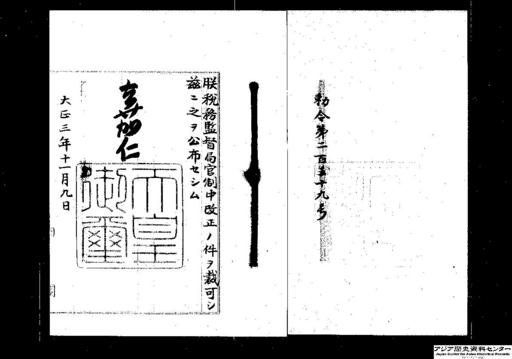 勅令第二百五十九号
朕税務監督局官制中改正ノ件ヲ裁可シ
茲ニ之ヲ公布セシム
嘉仁
天皇御璽
大正三年十一月九日
アジア歴史資料センター
Japan Center for Asian Historical Records